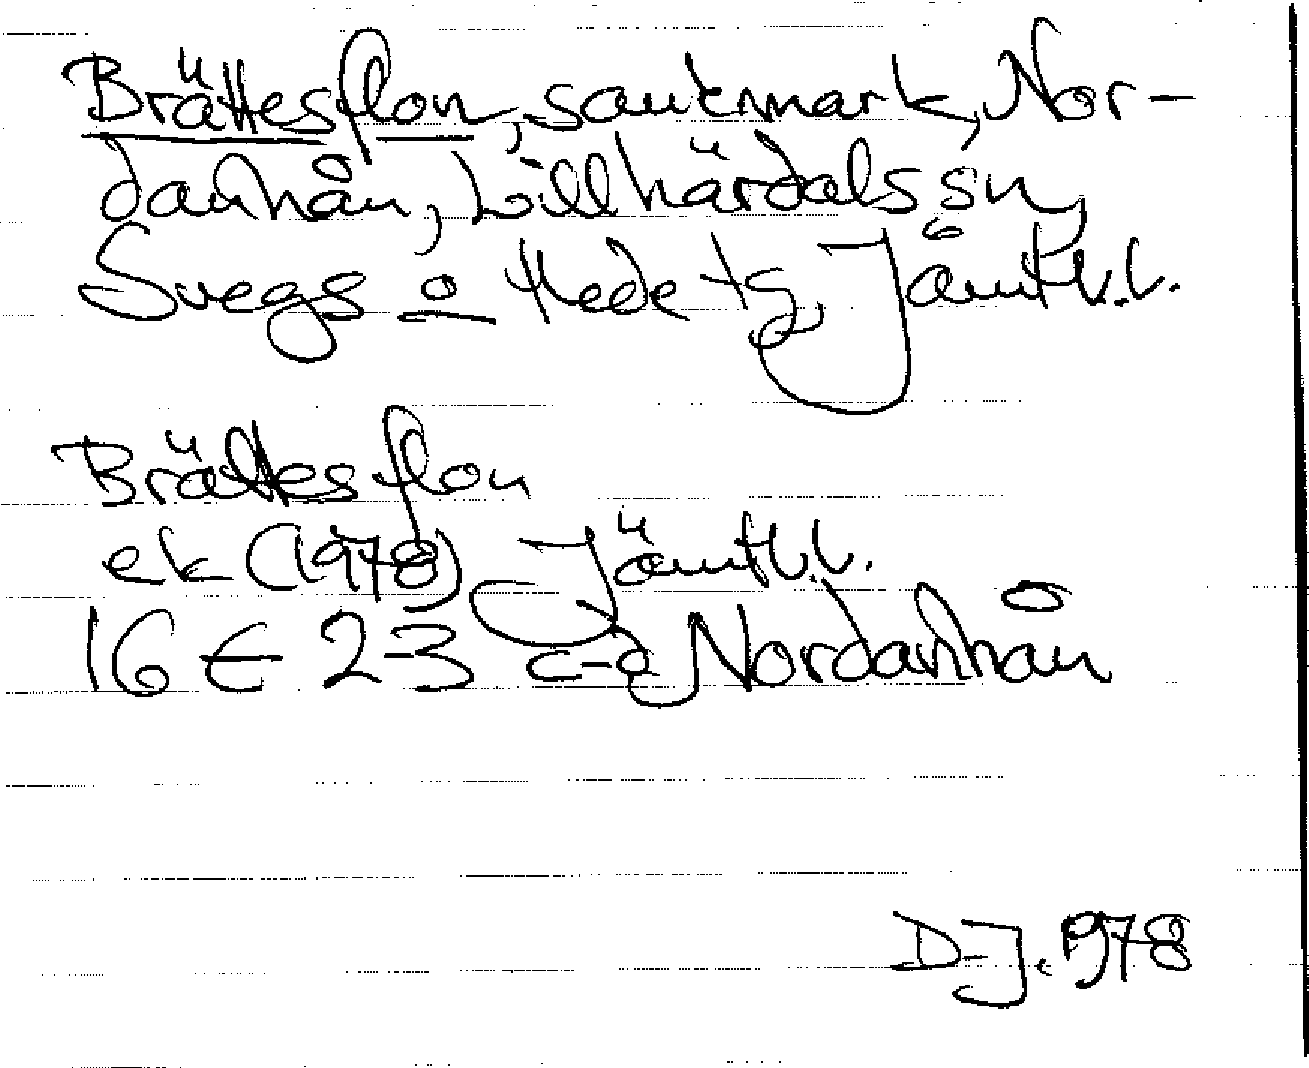 Brättesflon, sankmark, Nor-
danhån, Lillhärdals sn,
Svegs o Hede tg, Jämtl.l.
Brättesflon
ek (1978) Jämtl.l.
16 E 2-3 c-d Nordanhån
D-J. 1978